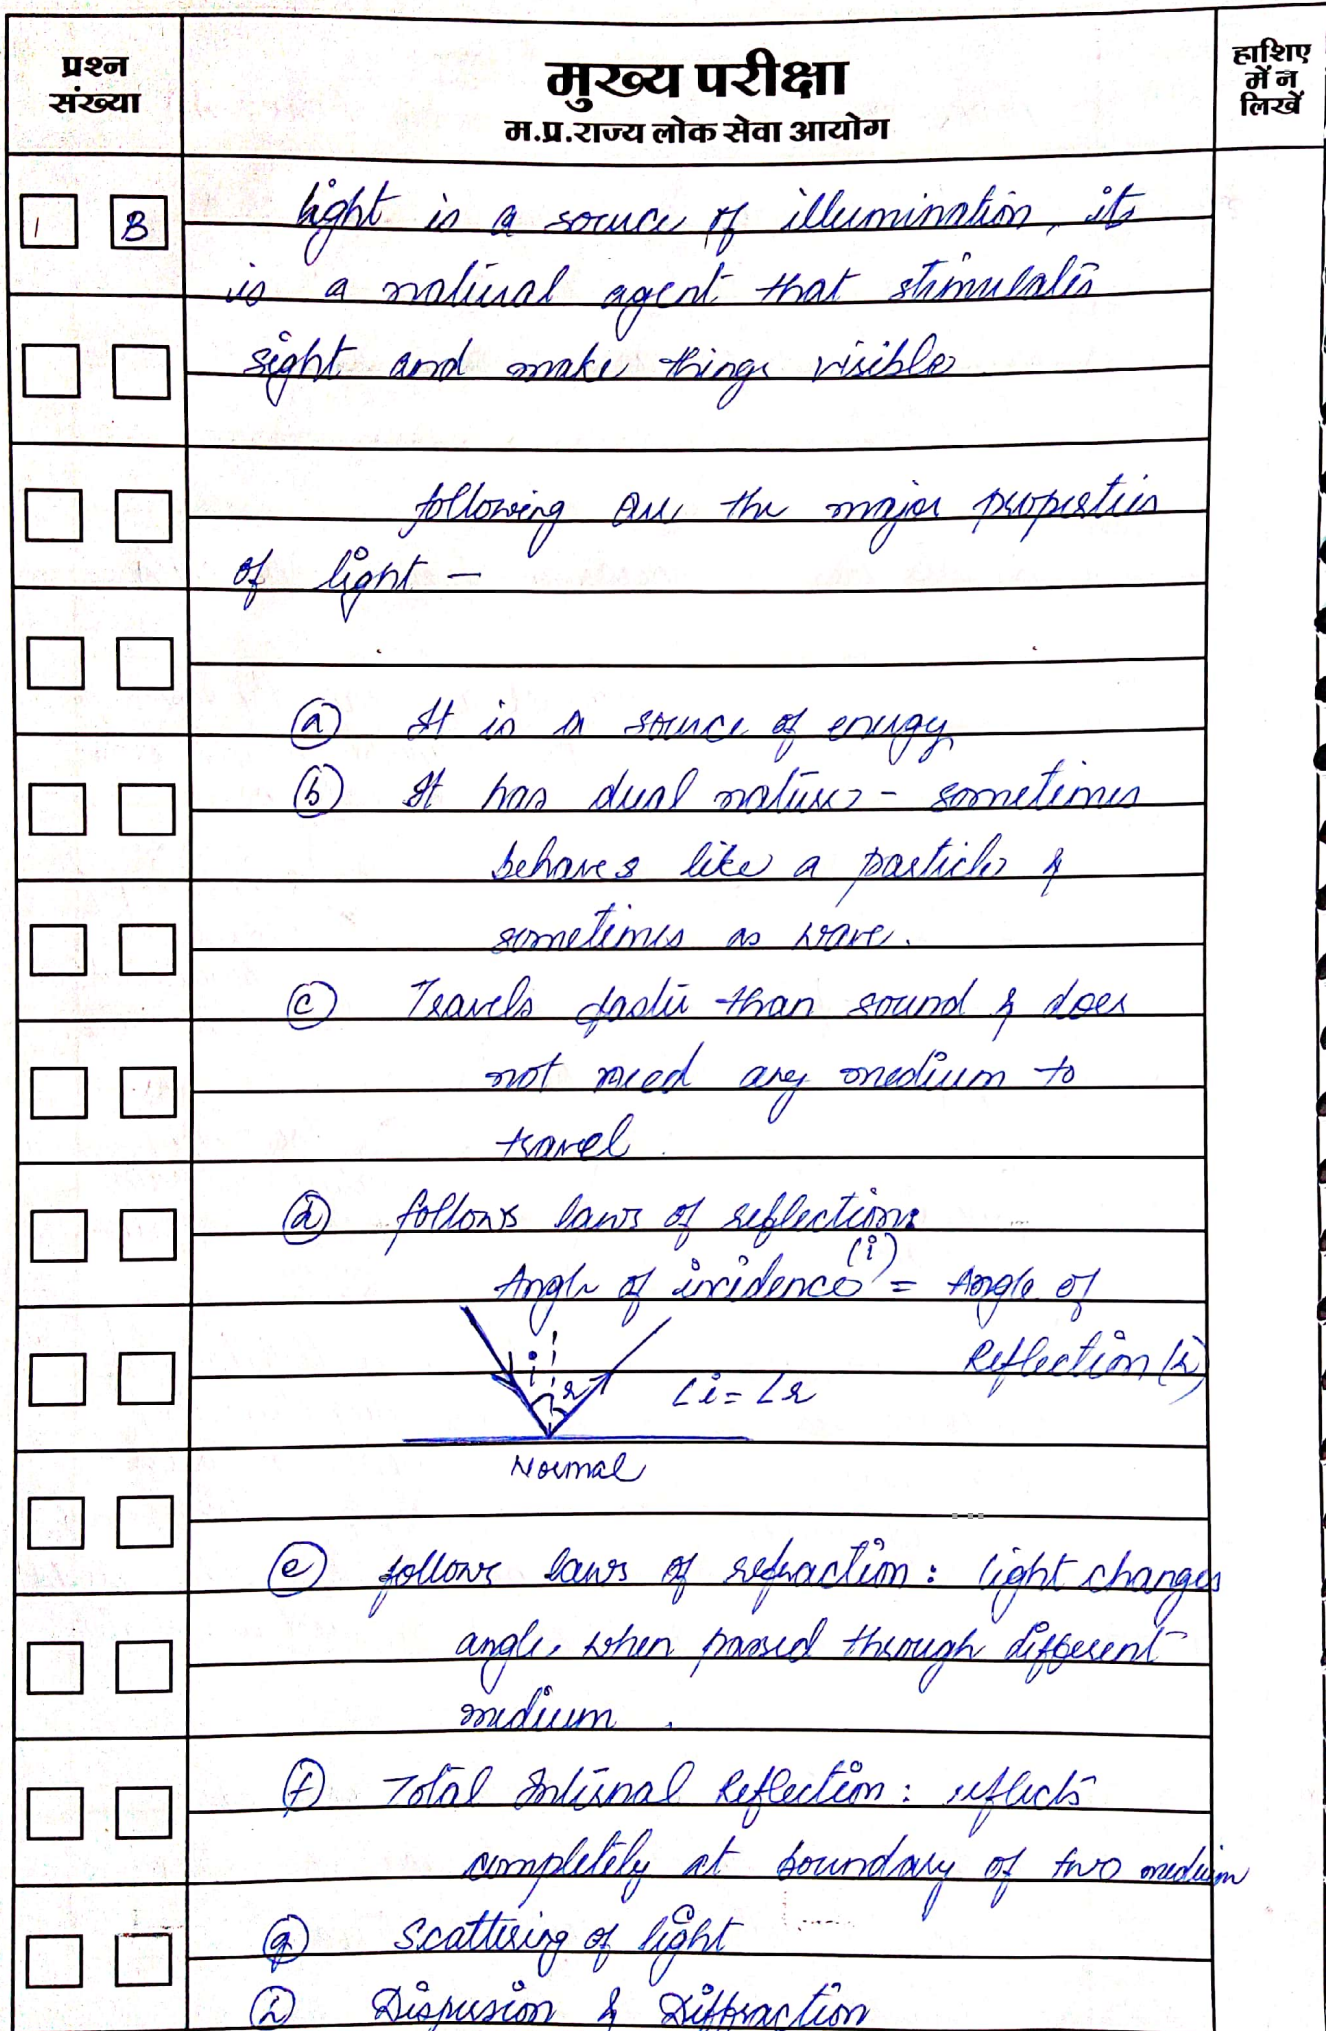 प्रश्न
संख्या
मुख्य परीक्षा
म.प्र.राज्य लोक सेवा आयोग
हाशिए
में न
लिखें
1 B
light is a source of illumination, its
is a natural agent that stimulates
sight and make things visible
following are the major properties
of light –
(a) It is a source of energy
(b) It has dual nature - sometimes
behaves like a particle &
sometimes as wave.
(c) Travels faster than sound & does
not need any medium to
travel
(d) follows laws of reflection:
Angle of incidence (i) = Angle of
Reflection (r)
i r
∠i = ∠r
Normal
(e) follows laws of refraction : light changes
angle, when passed through different
medium .
(f) Total Internal Reflection : reflects
completely at boundary of two medium
(g) Scattering of light
Dispersion & Diffraction